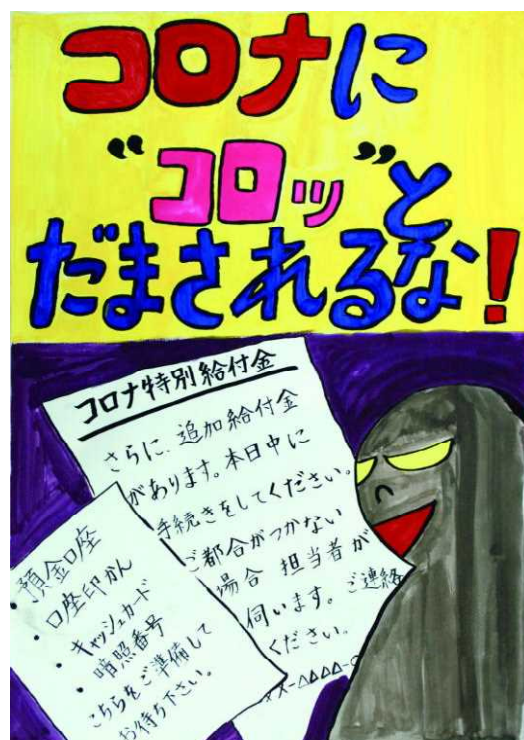 コロナに
“コロッ”と
だまされるな!
コロナ特別給付金
さらに、追加給付金
があります。本日中に
手続きをしてください。
ご都合がつかない
場合 担当者が
伺います。ご連絡
ください。
預金口座
・口座印かん
・キャッシュカード
・暗照番号
こちらをご準備して
お待ち下さい。